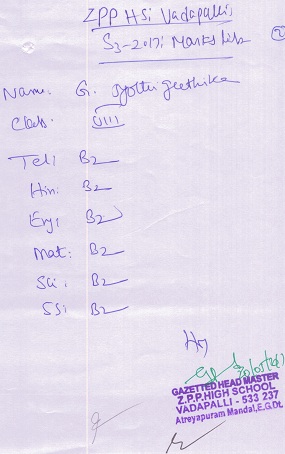 ZPP HS; Vadapalli
S3-2017; Marks list
Name: G. Jyothi geethika
Class: VIII
Tel; B2
Hin: B2
Eng: B2
Mat: B2
Sci: B2
SS; B2
GAZETTED HEAD MASTER
Z.P.P.HIGH SCHOOL
VADAPALLI - 533 237
Atreyapuram Mandal,E.G.Dt.